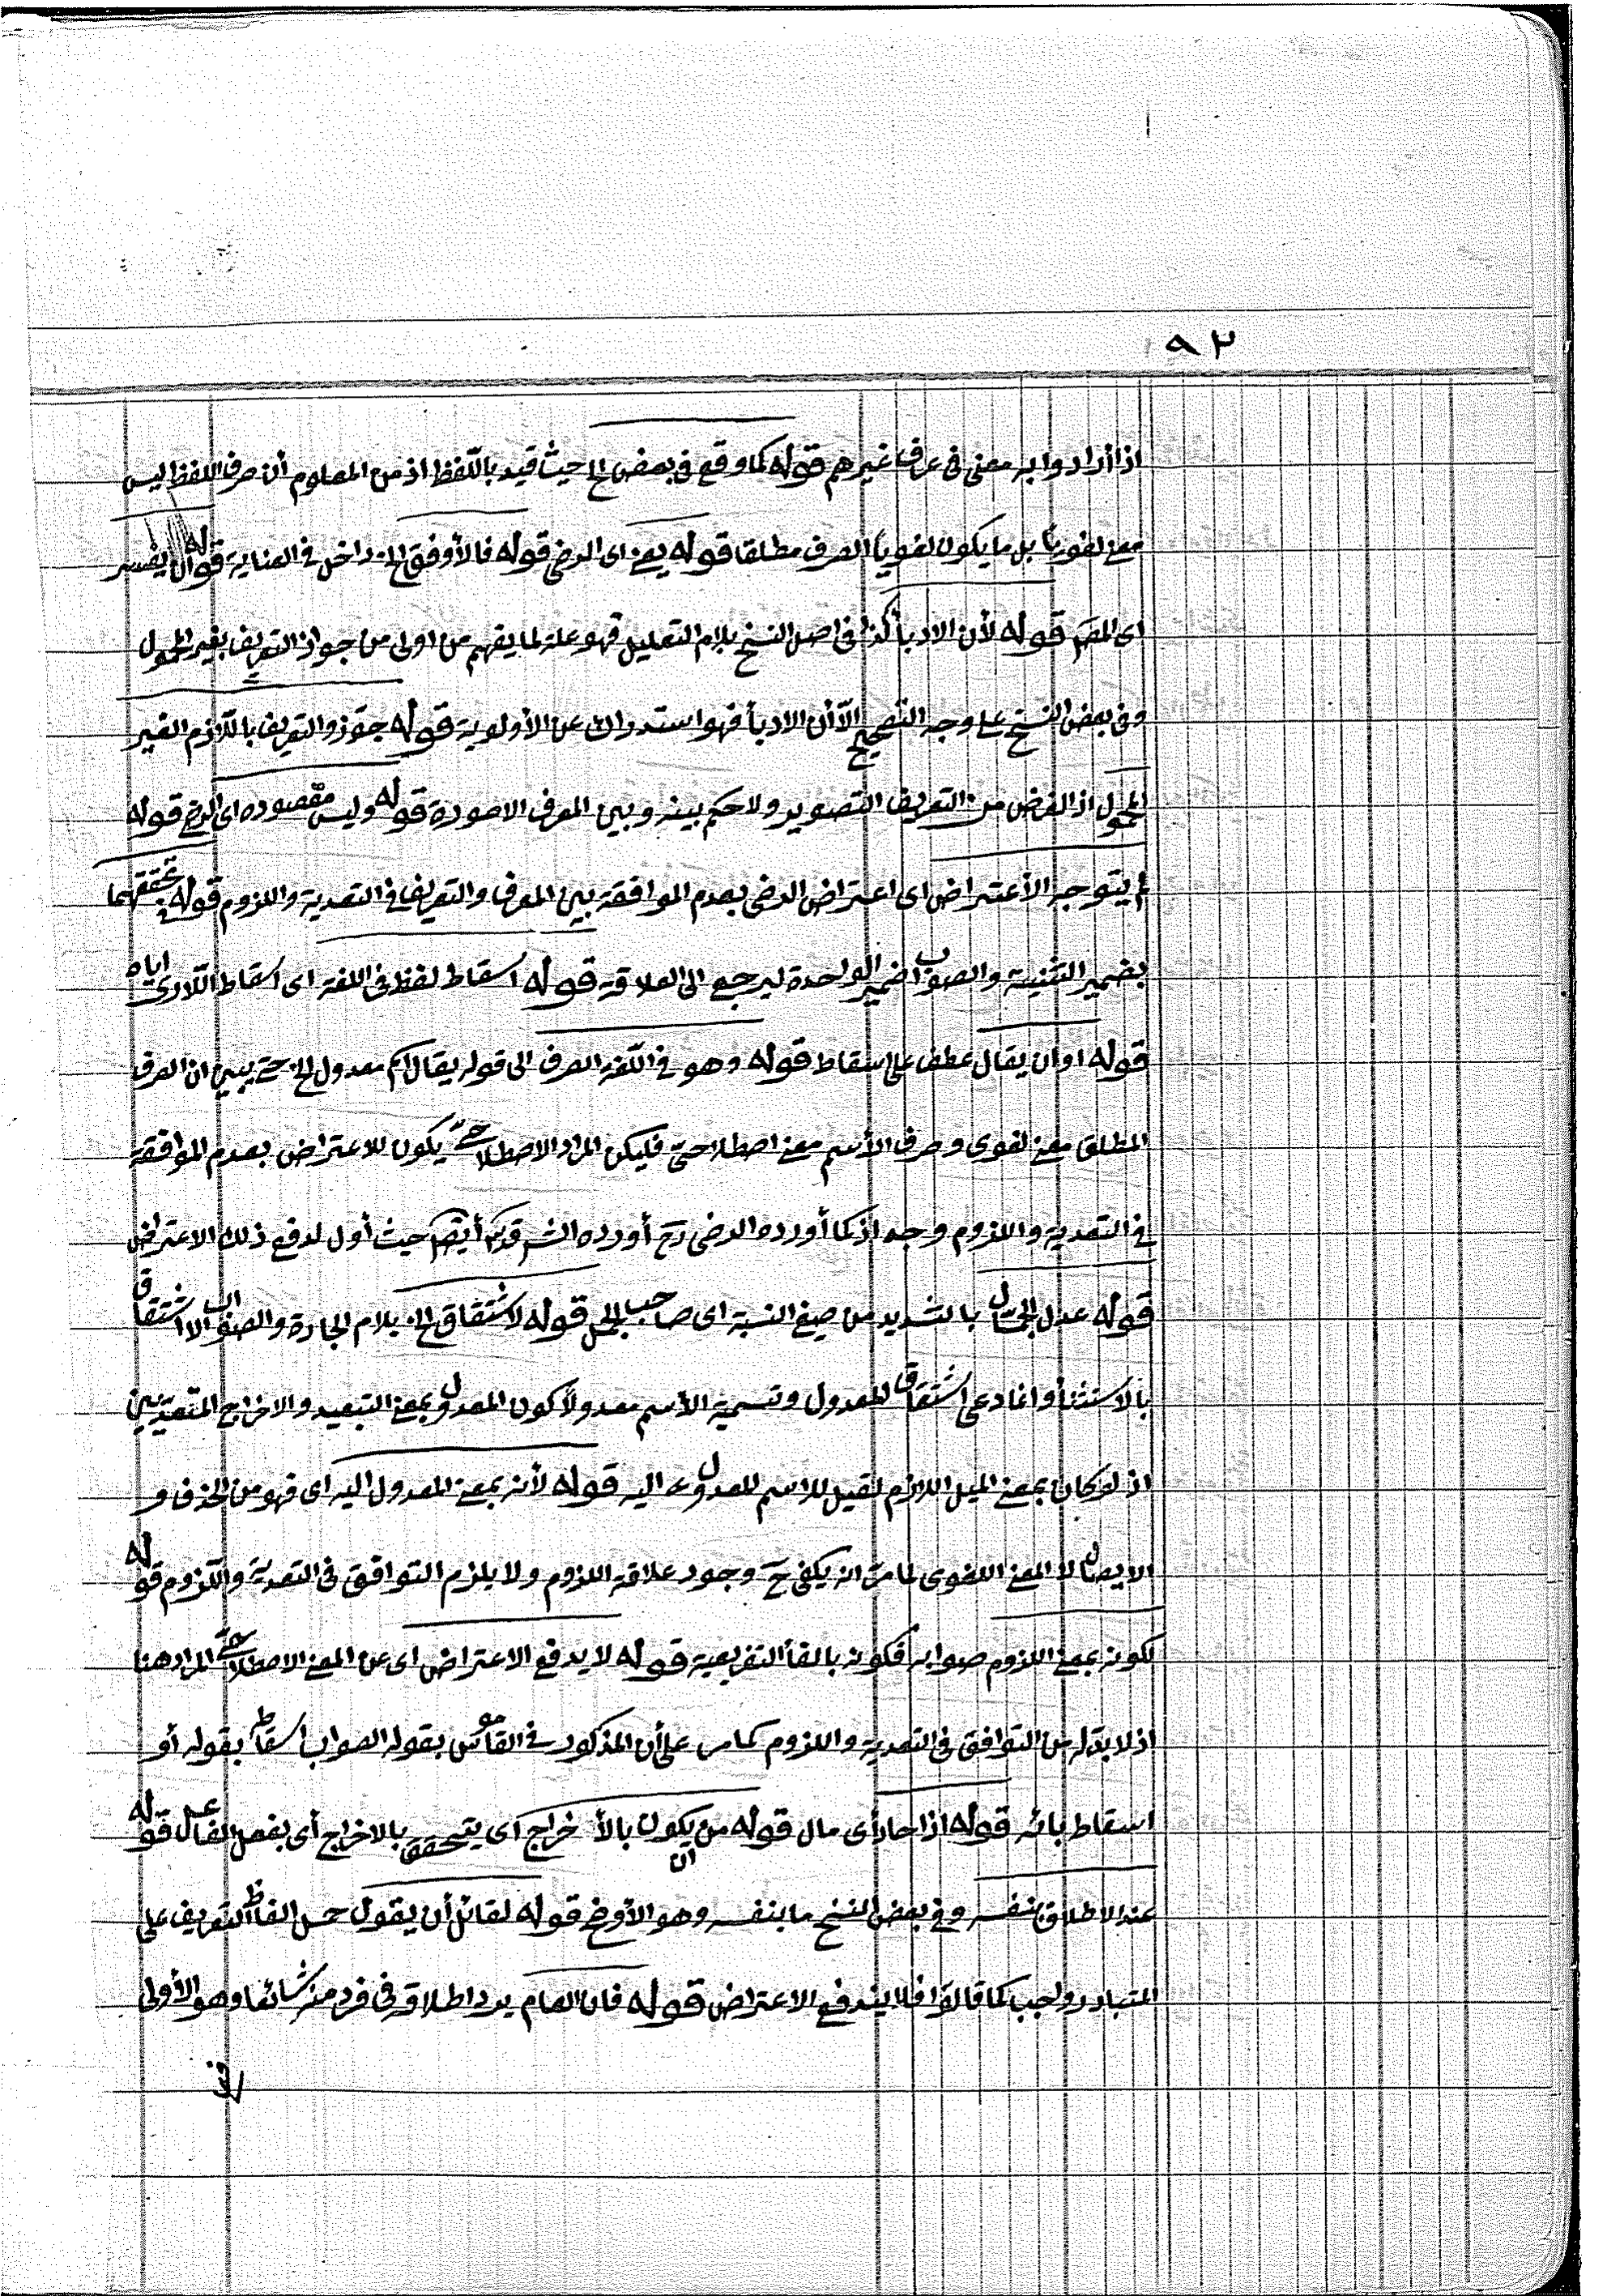 ٩٢
اذا أرادوا به معنى فى عرف غيرهم قوله كما وقع فى بعض الخ حيث قيد باللفظ اذ من المعلوم أن صرف اللفظ ليس
معنى لغوياً بل ما يكون لغوياً الصرف مطلقا قوله يعنى اى الرضى قوله فالأوفق الخ داخل فى العناية قوله ان يفسر
اى المصـ قوله لأن الادبأ كذا فى اصل النسخ بلام التعليل فهو علة لما يفهم من اولى من جواز التعريف بغير المحمول
وفى بعض النسخ على وجه التصحيح الّا أن الادبأ فهو استدراك عن الأولوية قوله جوّزوا التعريف باللازم الغير
المحمول اذ الغرض من التعريف التصوير ولا حكم بينه وبين المعرف الا صورة قوله وليس مقصوده اى الرضى قوله
لم يتوجه الأعتراض اى اعتراض الرضى بعدم الموافقة بين المعرف والتعريف فى التعدية واللزوم قوله تحققهما
بضمير التثنية والصواب ضمير الواحدة ليرجع الى العلاقة قوله اسقاط لفظ فى اللغة اى اسقاط اللارى اياه
قوله او ان يقال عطف على اسقاط قوله وهو فى اللغة الصرف الى قوله يقال اسم معدول الخ حتى يبين ان الصرف
المطلق معنى لغوى وصرف الأسم معنى اصطلاحىّ فليكن المراد الاصطلاحىّ يكون للاعتراض بعدم الموافقة
فى التعدية واللزوم وجه اذ كما أورده الرضى رح أورده الشـ أيضا حيث أول لدفع ذلك الاعتراض
قوله عدل الجمّال بالتشديد من صيغ النسبة اى صاحب الجمل قوله لاشتقاق الخ بلام الجارة والصواب الا اشتقاق
بالاستثنأ وانما دعى اشتقاق المعدول وتسمية الأسم معدولاً كون المعدول بمعنى التبعيد والاخراج المتعديين
اذ لو كان بمعنى الميل اللازم لقيل للاسم المعدول عـ اليه قوله لأنه بمعنى المعدول اليه اى فهو من الحذف و
الايصال لا المعنى اللغوى لما مرّ انه يكفى ح وجود علاقة اللزوم ولا يلزم التوافق فى التعدية واللزوم قوله
لكونه بمعنى اللزوم صوابه فكونه بالفأ التفريعية قوله لا يدفع الاعتراض اى عن المعنى الاصطلاحىّ المراد هنا
اذ لا بدّ له من التوافق فى التعدية واللزوم كما مر على أن المذكور فى القاموس بقوله الصواب اسقاط بقوله أو
اسقاط بائه قوله اذا حاد أى مال قوله من ان يكون بالأخراج اى يتحقق بالاخراج أى بفعل الفاعل قوله
عند الاطلاق نفسه وفى بعض النسخ ما بنفسه وهو الأوضح قوله لقائل أن يقول حمل الفاظ التعريف على
المتبادر واجب كما قالوا فلا يندفع الاعتراض قوله فان العام يرد اطلاقه فى فرد منه شائعا وهو الأولى